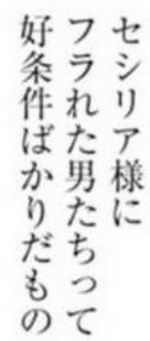 セシリア様に
フラれた男たちって
好条件ばかりだもの